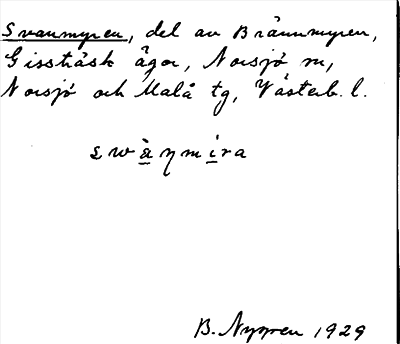 Svanmyren, del av Brännmyren,
Gissträsk ägor, Norsjö sn,
Norsjö och Malå tg, Västerb. l.
swànmira
B. Nygren 1929